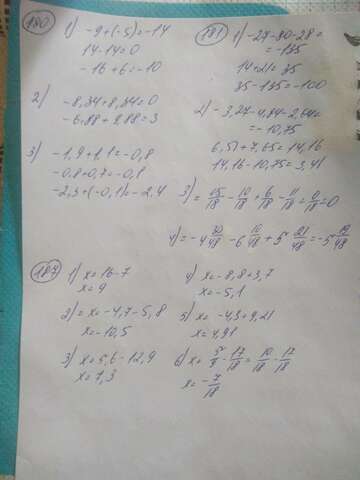 180
1) -9+(-5)=-14
14-14=0
-16+6=-10
2) -8,34+8,34=0
-6,88+9,88=3
3) -1,9+1,1=-0,8
-0,8+0,7=-0,1
-2,3+(-0,1)=-2,4
181
1) -27-80-28=
=-135
14+21=35
35-135=-100
2) -3,27-4,84-2,64=
=-10,75
6,51+7,65=14,16
14,16-10,75=3,41
3) = 15/18 - 10/18 + 6/18 - 11/18 = 0/18 = 0
187
1) x=16-7
x=9
2) x=-4,7-5,8
x=-10,5
3) x=5,6-12,9
x=7,3
4) x=-8,8+3,7
x=-5,1
5) x=-4,3+9,21
x=4,91
6) x= 5/9 - 17/18 = 10/18 - 17/18
x= -7/18